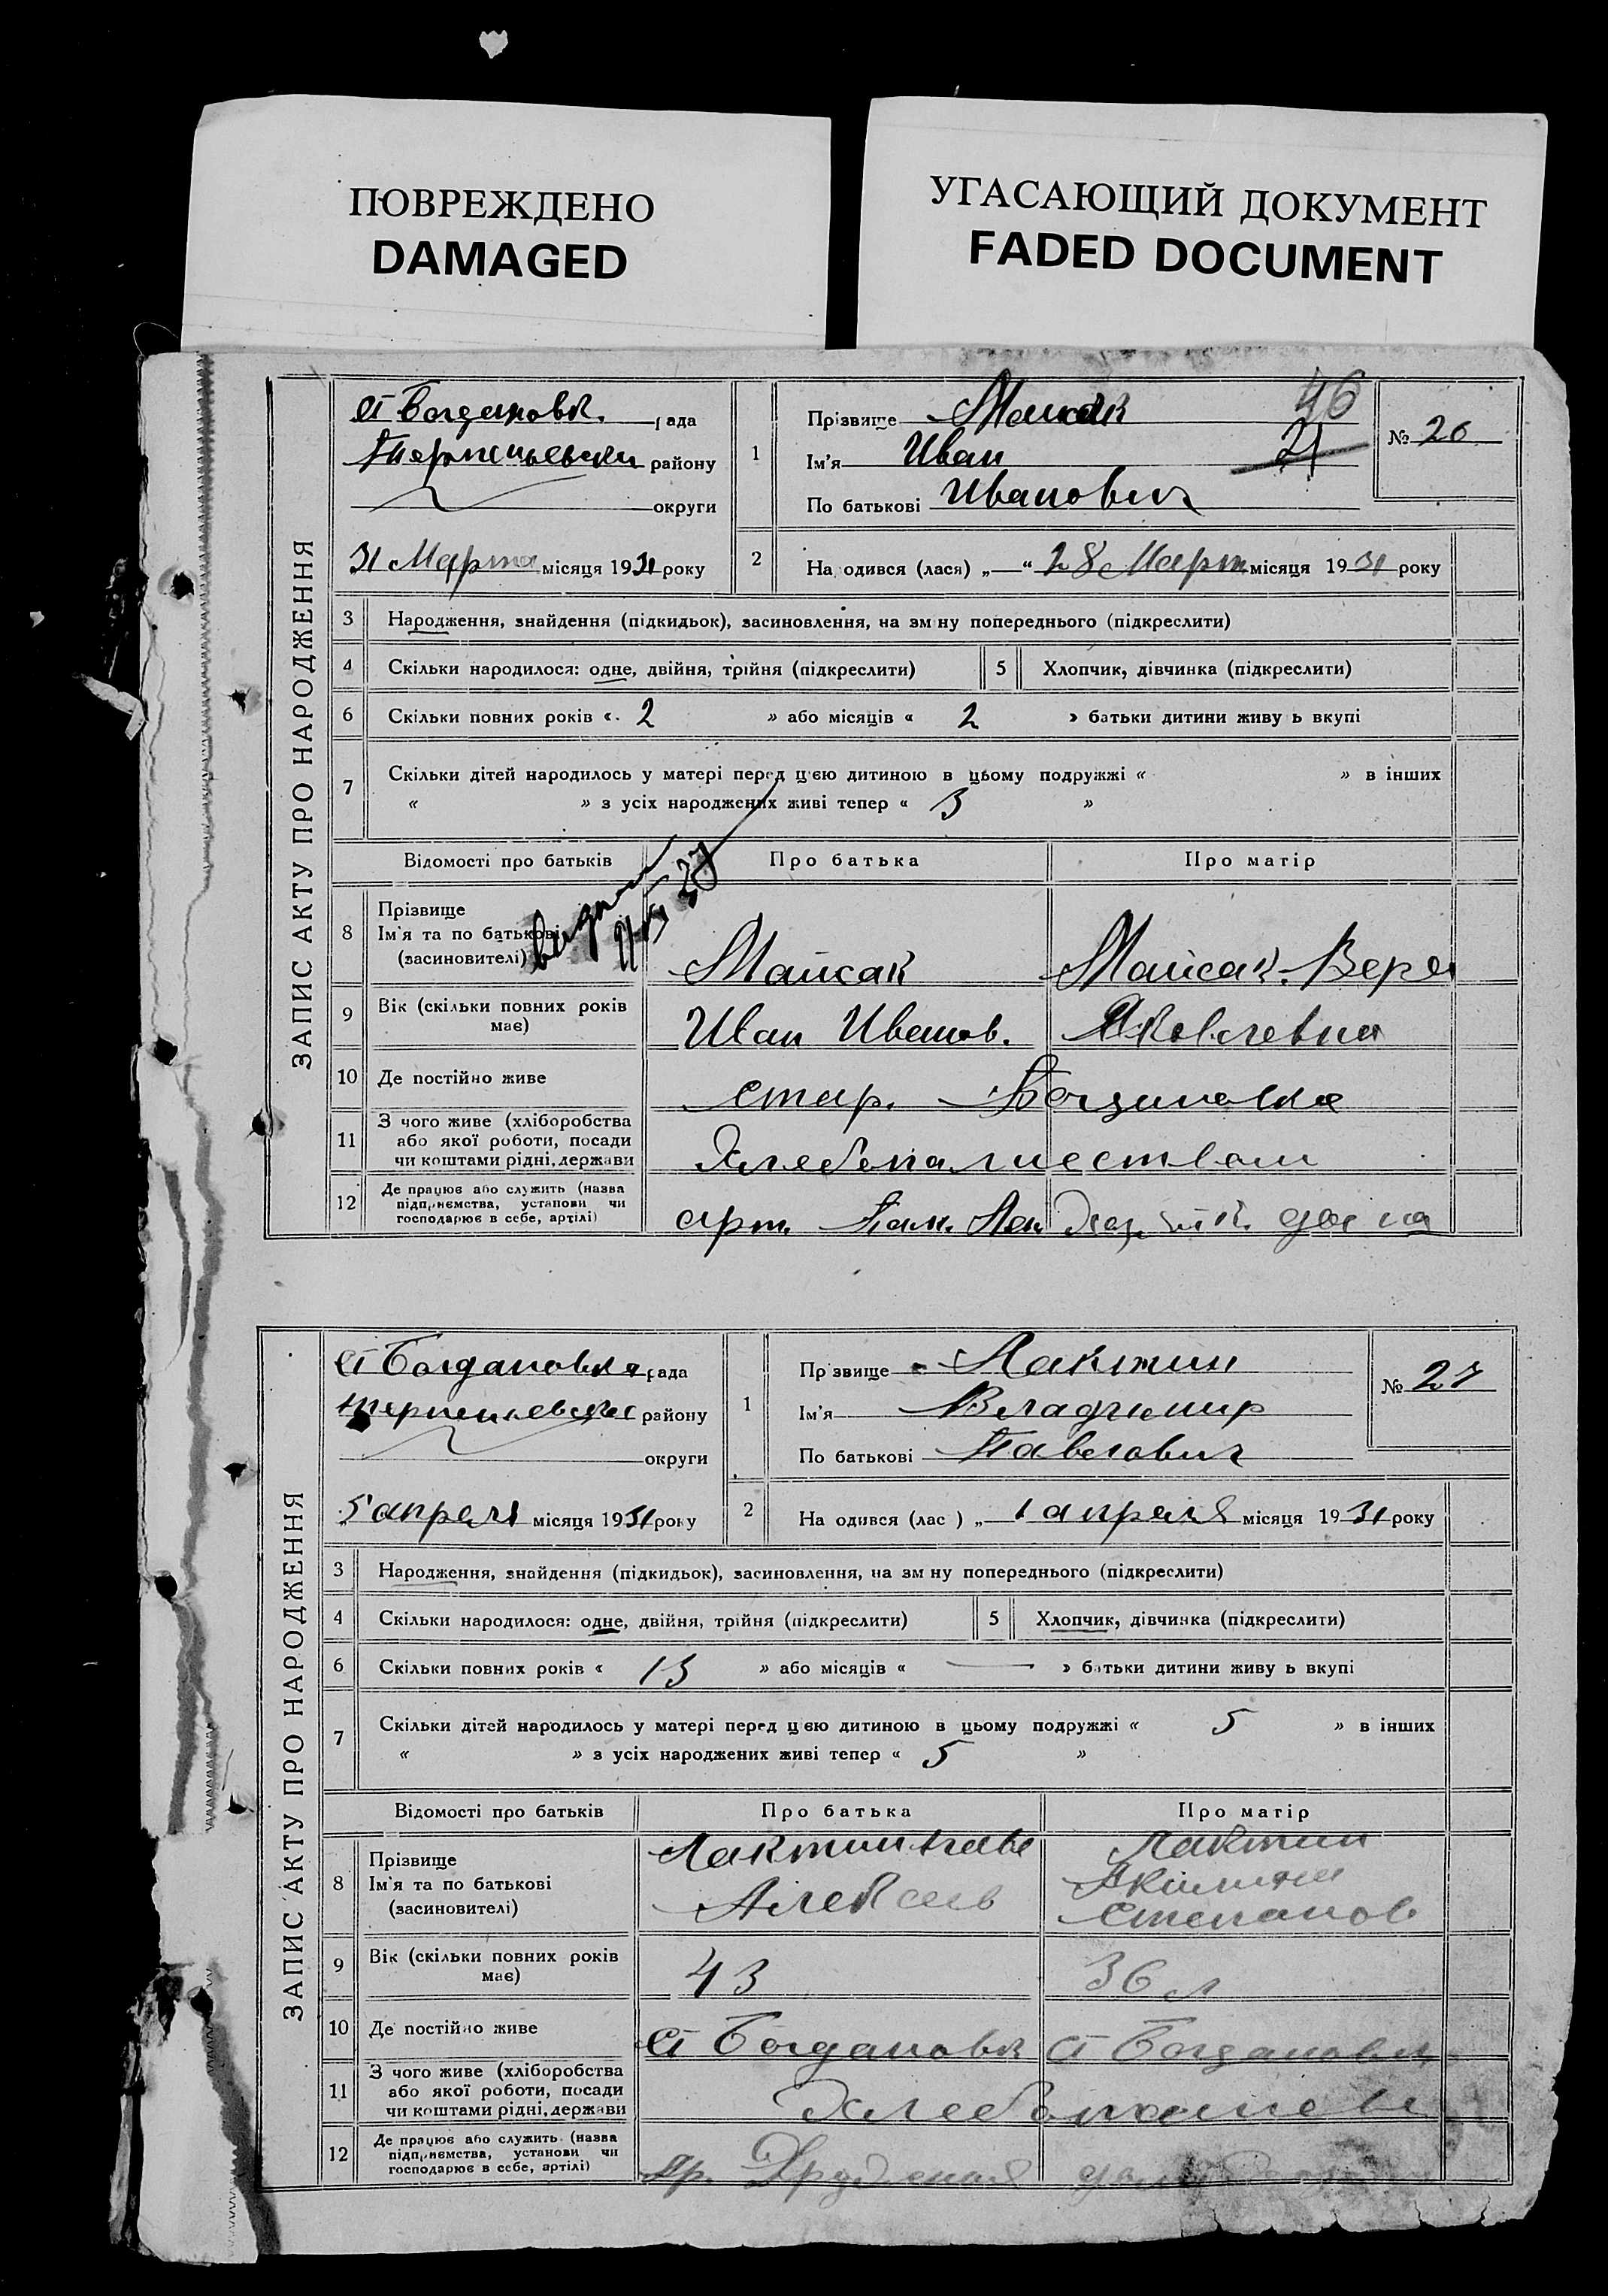 ПОВРЕЖДЕНО
DAMAGED
УГАСАЮЩИЙ ДОКУМЕНТ
FADED DOCUMENT
ЗАПИС АКТУ ПРО НАРОДЖЕННЯ
ст Богдановк. рада
району
округи
31 Марта місяця 1931 року
1 Прізвище Майсак
46
Ім'я Иван
21
По батькові Иванович
№ 26
2 На одився (лася) „ “ 28 Март місяця 1931 року
3 Народження, знайдення (підкидьок), засиновлення, на зм ну попереднього (підкреслити)
4 Скільки народилося: одне, двійня, трійня (підкреслити) 5 Хлопчик, дівчинка (підкреслити)
6 Скільки повних років « 2 » або місяців « 2 » батьки дитини живу ь вкупі
7 Скільки дітей народилось у матері перед цією дитиною в цьому подружжі « » в інших
« » з усіх народжених живі тепер « 3 »
Відомості про батьків Про батька Про матір
8 Прізвище
Ім'я та по батькові
(засновителі)
Майсак Майсак Вера
9 Вік (скільки повних років
має)
Иван Иванов. Яковлевна
10 Де постійно живе
Стар. Богдановка
11 З чого живе (хліборобства
або якої роботи, посади
чи коштами рідні, держави
Хлебопашеством
12 Де працює або служить (назва
підприємства, установи чи
господарює в себе, артілі)
арт.
ЗАПИС АКТУ ПРО НАРОДЖЕННЯ
ст Богдановка рада
району
округи
5 апреля місяця 1931 року
1 Пр звище Лактин
Ім'я Владимир
По батькові Павлович
№ 27
2 На одився (лас ) „ 1 апреля місяця 1931 року
3 Народження, знайдення (підкидьок), засиновлення, на зм ну попереднього (підкреслити)
4 Скільки народилося: одне, двійня, трійня (підкреслити) 5 Хлопчик, дівчинка (підкреслити)
6 Скільки повних років « 13 » або місяців « — » батьки дитини живу ь вкупі
7 Скільки дітей народилось у матері перед цією дитиною в цьому подружжі « 5 » в інших
« » з усіх народжених живі тепер « 5 »
Відомості про батьків Про батька Про матір
8 Прізвище
Ім'я та по батькові
(засиновителі)
Лактин Лактин
Алексеев
Степанов
9 Вік (скільки повних років
має)
43 36 л
10 Де постійно живе
ст Богдановк ст Богдановк
11 З чого живе (хліборобства
або якої роботи, посади
чи коштами рідні, держави
12 Де працює або служить (назва
підприємства, установи чи
господарює в себе, артілі)